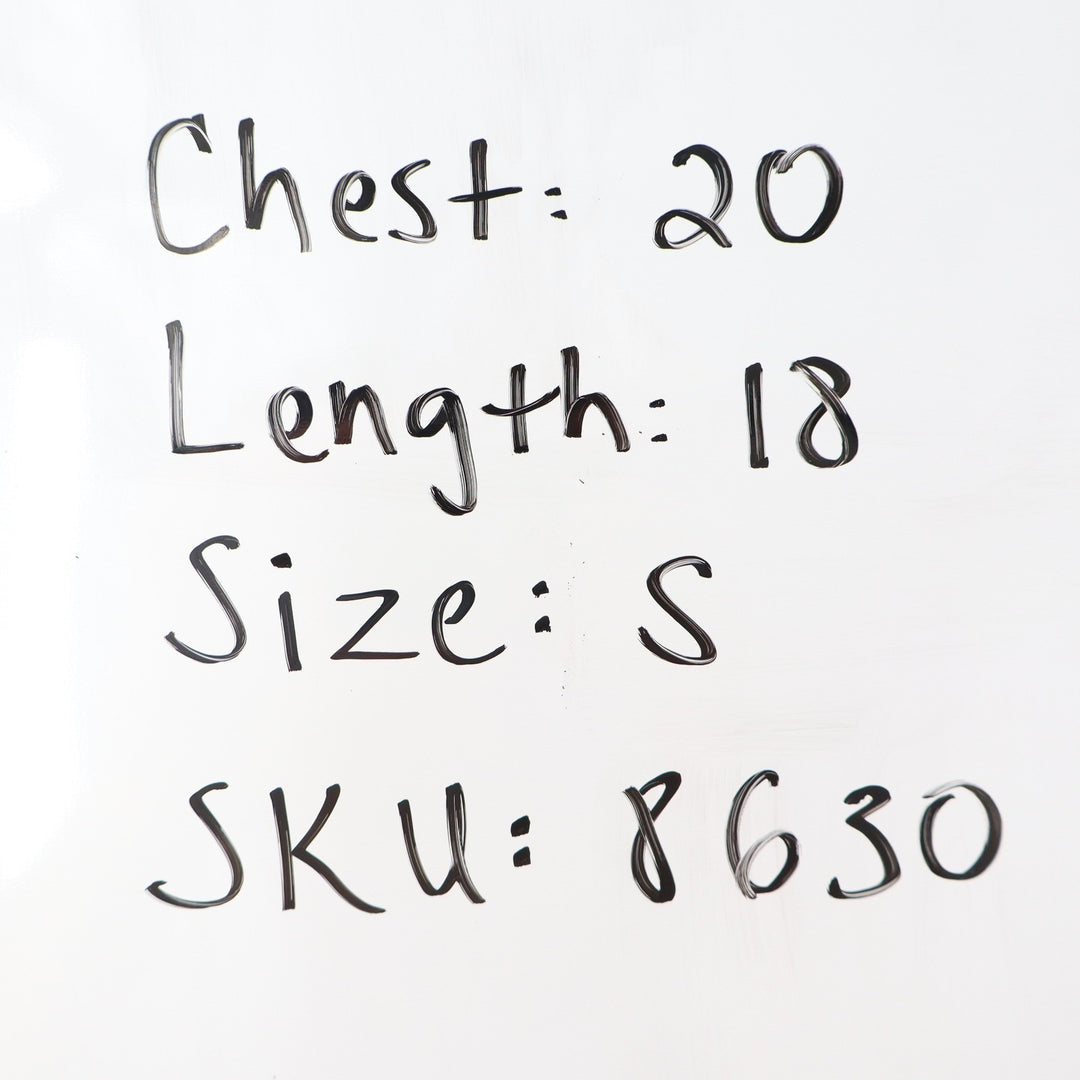 Chest: 20
Length: 18
Size: S
SKU: 8630